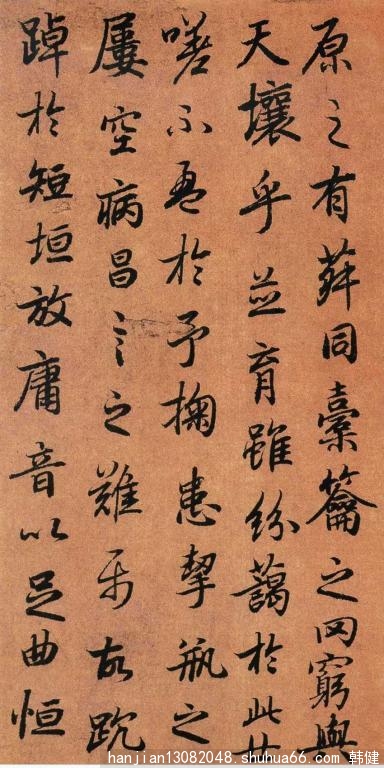 原之有菽同橐籥之罔窮與
天壤乎並育雖紛藹於此世
嗟不盈於予掬患挈瓶之
屢空病昌言之難屬故踸
踔於短垣放庸音以足曲恒
hanjian13082048.shuhua66.com 韩健